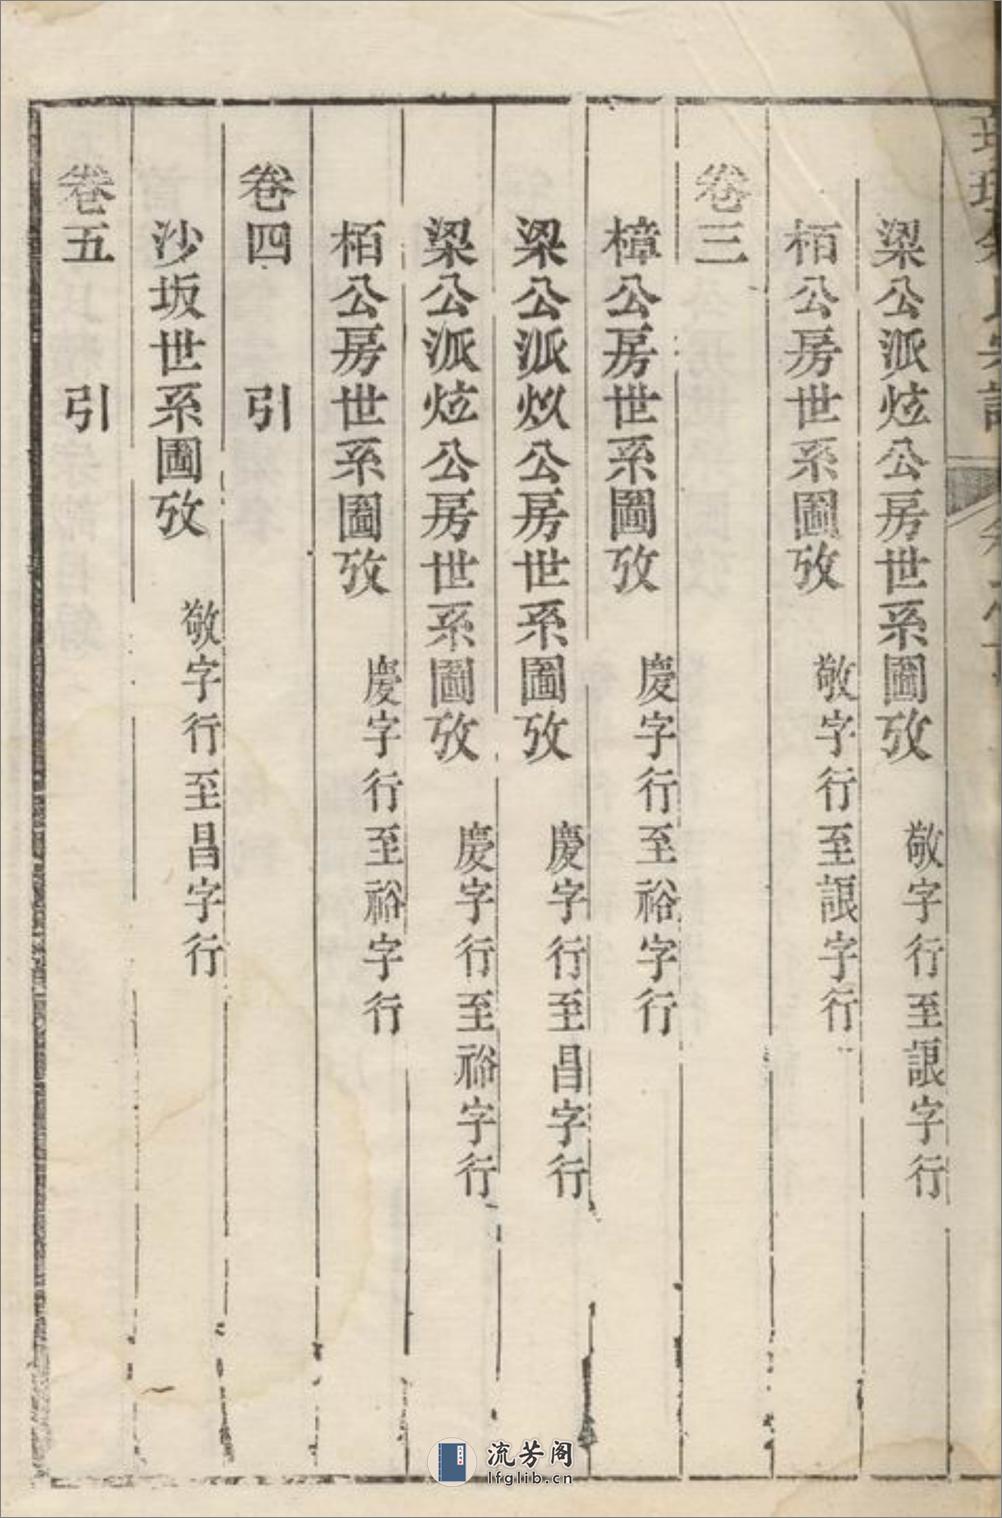 梁公派炫公房世系圖攷 敬字行至詪字行
栢公房世系圖攷 敬字行至詪字行
卷三
樟公房世系圖攷 慶字行至裕字行
梁公派炏公房世系圖攷 慶字行至昌字行
梁公派炫公房世系圖攷 慶字行至裕字行
栢公房世系圖攷 慶字行至裕字行
卷四 引
沙坂世系圖攷 敬字行至昌字行
卷五 引
流芳阁
lfglib.cn